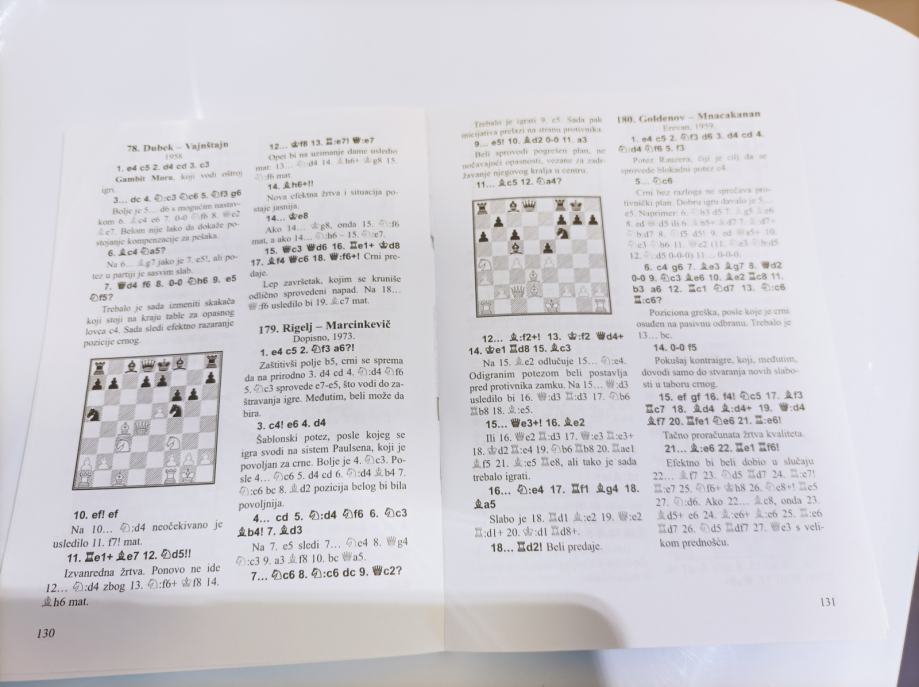 78. Dubek – Vajnštajn
1958.
1. e4 c5 2. d4 cd 3. c3
Gambit Mora, koji vodi oštroj
igri.
3... dc 4. ♘:c3 ♘c6 5. ♘f3 g6
Bolje je 5... d6 s mogućim nastav-
kom 6. ♗c4 e6 7. 0-0 ♘f6 8. ♕e2
♗e7. Belom nije lako da dokaže po-
stojanje kompenzacije za pešaka.
6. ♗c4 ♘a5?
Na 6... ♗g7 jako je 7. e5!, ali po-
tez u partiji je sasvim slab.
7. ♕d4 f6 8. 0-0 ♘h6 9. e5
♘f5?
Trebalo je izmeniti skakača
koji stoji na kraju table za opasnog
lovca c4. Sada sledi efektno razaranje
pozicije crnog.
10. ef! ef
Na 10... ♘:d4 neočekivano je
usledilo 11. f7! mat.
11. ♖e1+ ♗e7 12. ♘d5!!
Izvanredna žrtva. Ponovo ne ide
12... ♘:d4 zbog 13. ♘:f6+ ♔f8 14.
♗h6 mat.
130
12... ♔f8 13. ♖:e7! ♕:e7
Opet bi na uzimanje dame usledio
mat: 13... ♘:d4 14. ♗h6+ ♔g8 15.
♘:f6 mat.
14. ♗h6+!!
Nova efektna žrtva i situacija po-
staje jasnija.
14... ♔e8
Ako 14... ♔g8, onda 15. ♘:f6
mat, a ako 14... ♘:h6 – 15. ♘:e7.
15. ♕c3 ♕d6 16. ♖e1+ ♔d8
17. ♗f4 ♕c6 18. ♕:f6+! Crni pre-
daje.
Lep završetak, kojim se kruniše
odlično sprovedeni napad. Na 18...
♕:f6 usledilo bi 19. ♗c7 mat.
179. Rigelj – Marcinkevič
Dopisno, 1973.
1. e4 c5 2. ♘f3 a6?!
Zaštitivši polje b5, crni se sprema
da na prirodno 3. d4 cd 4. ♘:d4 ♘f6
5. ♘c3 sprovede e7-e5, što vodi do za-
oštravanja igre. Međutim, beli može da
bira.
3. c4! e6 4. d4
Šablonski potez, posle kojeg se
igra svodi na sistem Paulsena, koji je
povoljan za crne. Bolje je 4. ♘c3. Po-
sle 4... ♘c6 5. d4 cd 6. ♘:d4 ♗b4 7.
♘:c6 bc 8. ♗d2 pozicija belog bi bila
povoljnija.
4... cd 5. ♘:d4 ♘f6 6. ♘c3
♗b4! 7. ♗d3
Na 7. e5 sledi 7... ♘e4 8. ♕g4
♘:c3 9. a3 ♗f8 10. bc ♕a5.
7... ♘c6 8. ♘:c6 dc 9. ♕c2?
Trebalo je igrati 9. e5. Sada pak
inicijativa prelazi na stranu protivnika.
9... e5! 10. ♗d2 0-0 11. a3
Beli sprovodi pogrešan plan, ne
uočavajući opasnosti, vezane za zadr-
žavanje njegovog kralja u centru.
11... ♗c5 12. ♘a4?
12... ♗:f2+! 13. ♔:f2 ♕d4+
14. ♔e1 ♖d8 15. ♗c3
Na 15. ♗e2 odlučuje 15... ♘:e4.
Odigranim potezom beli postavlja
pred protivnika zamku. Na 15... ♕:d3
usledilo bi 16. ♕:d3 ♖:d3 17. ♘b6
♖b8 18. ♗:e5.
15... ♕e3+! 16. ♗e2
Ili 16. ♕e2 ♖:d3 17. ♕:e3 ♖:e3+
18. ♔d2 ♖:e4 19. ♘b6 ♖b8 20. ♖ae1
♗f5 21. ♗:e5 ♖e8, ali tako je sada
trebalo igrati.
16... ♘:e4 17. ♖f1 ♗g4 18.
♗a5
Slabo je 18. ♖d1 ♗:e2 19. ♕:e2
♖:d1+ 20. ♔:d1 ♖d8+.
18... ♖d2! Beli predaje.
180. Goldenov – Mnacakanan
Erevan, 1959.
1. e4 c5 2. ♘f3 d6 3. d4 cd 4.
♘:d4 ♘f6 5. f3
Potez Rauzera, čiji je cilj da se
sprovede blokadni potez c4.
5... ♘c6
Crni bez razloga ne sprečava pro-
tivnički plan. Dobru igru davalo je 5...
e5. Naprimer: 6. ♘b3 d5 7. ♗g5 ♗e6
6. c4 g6 7. ♗e3 ♗g7 8. ♕d2
0-0 9. ♘c3 ♗e6 10. ♗e2 ♖c8 11.
b3 a6 12. ♖c1 ♘d7 13. ♘:c6
♖:c6?
Poziciona greška, posle koje je crni
osuđen na pasivnu odbranu. Trebalo je
13... bc.
14. 0-0 f5
Pokušaj kontraigre, koji, međutim,
dovodi samo do stvaranja novih slabo-
sti u taboru crnog.
15. ef gf 16. f4! ♘c5 17. ♗f3
♖c7 18. ♗d4 ♗:d4+ 19. ♕:d4
♗f7 20. ♖fe1 ♘e6 21. ♖:e6!
Tačno proračunata žrtva kvaliteta.
21... ♗:e6 22. ♖e1 ♖f6!
Efektno bi beli dobio u slučaju
22... ♗f7 23. ♘d5 ♖d7 24. ♖:e7!
♖:e7 25. ♘f6+ ♔h8 26. ♘e8+! ♖e5
27. ♘:d6. Ako 22... ♗c8, onda 23.
♗d5+ e6 24. ♗:e6+ ♗:e6 25. ♖:e6
♖d7 26. ♘d5 ♖df7 27. ♕e3 s veli-
kom prednošću.
131